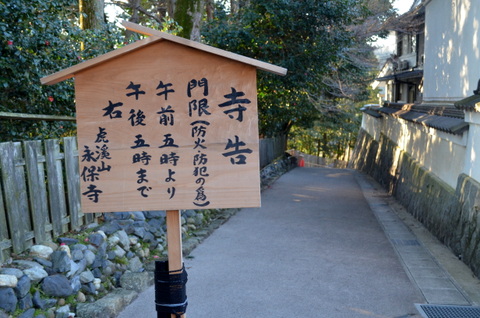 寺告
門限(防火防犯の為)
午前五時より
午後五時まで
右
虎溪山
永保寺